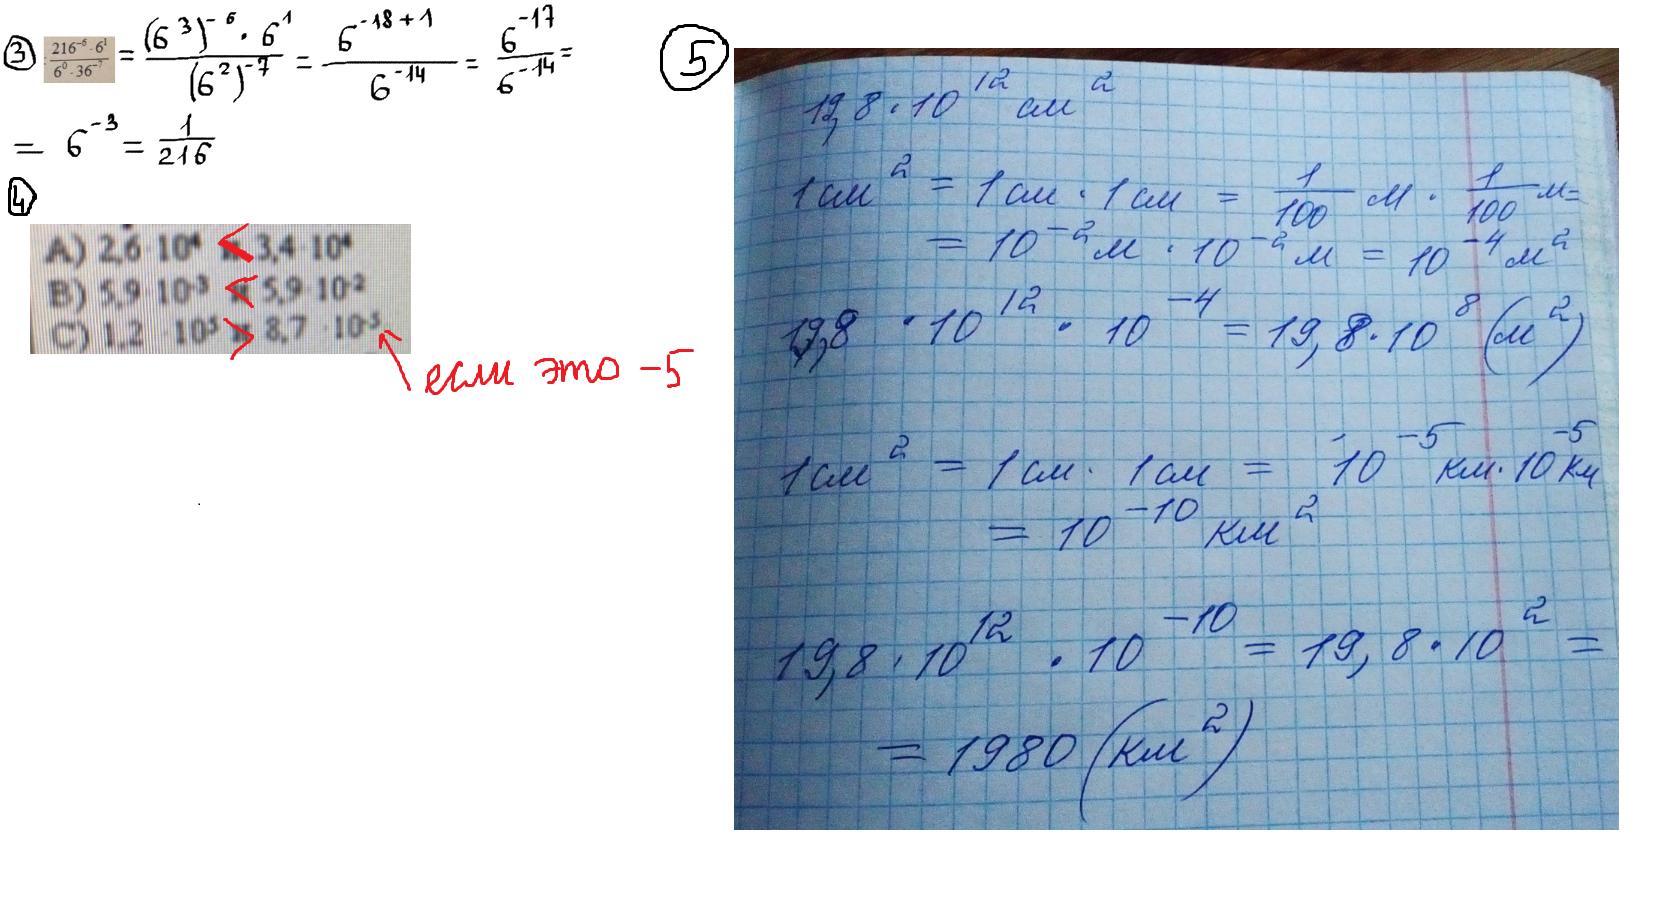 ③ 216⁻⁶·6¹ / 6⁰·36⁻⁷ = (6³)⁻⁶·6¹ / (6²)⁻⁷ = 6⁻¹⁸⁺¹ / 6⁻¹⁴ = 6⁻¹⁷ / 6⁻¹⁴ =
= 6⁻³ = 1/216
④
A) 2,6·10⁴ < 3,4·10⁴
B) 5,9·10⁻³ < 5,9·10⁻²
C) 1,2 · 10⁵ > 8,7 · 10⁻⁵
если это -5
⑤
19,8·10¹² см²
1 см² = 1 см · 1 см = 1/100 м · 1/100 м =
= 10⁻² м · 10⁻² м = 10⁻⁴ м²
19,8 · 10¹² · 10⁻⁴ = 19,8·10⁸ (м²)
1 см² = 1 см · 1 см = 10⁻⁵ км · 10⁻⁵ км
= 10⁻¹⁰ км²
19,8 · 10¹² · 10⁻¹⁰ = 19,8·10² =
= 1980 (км²)